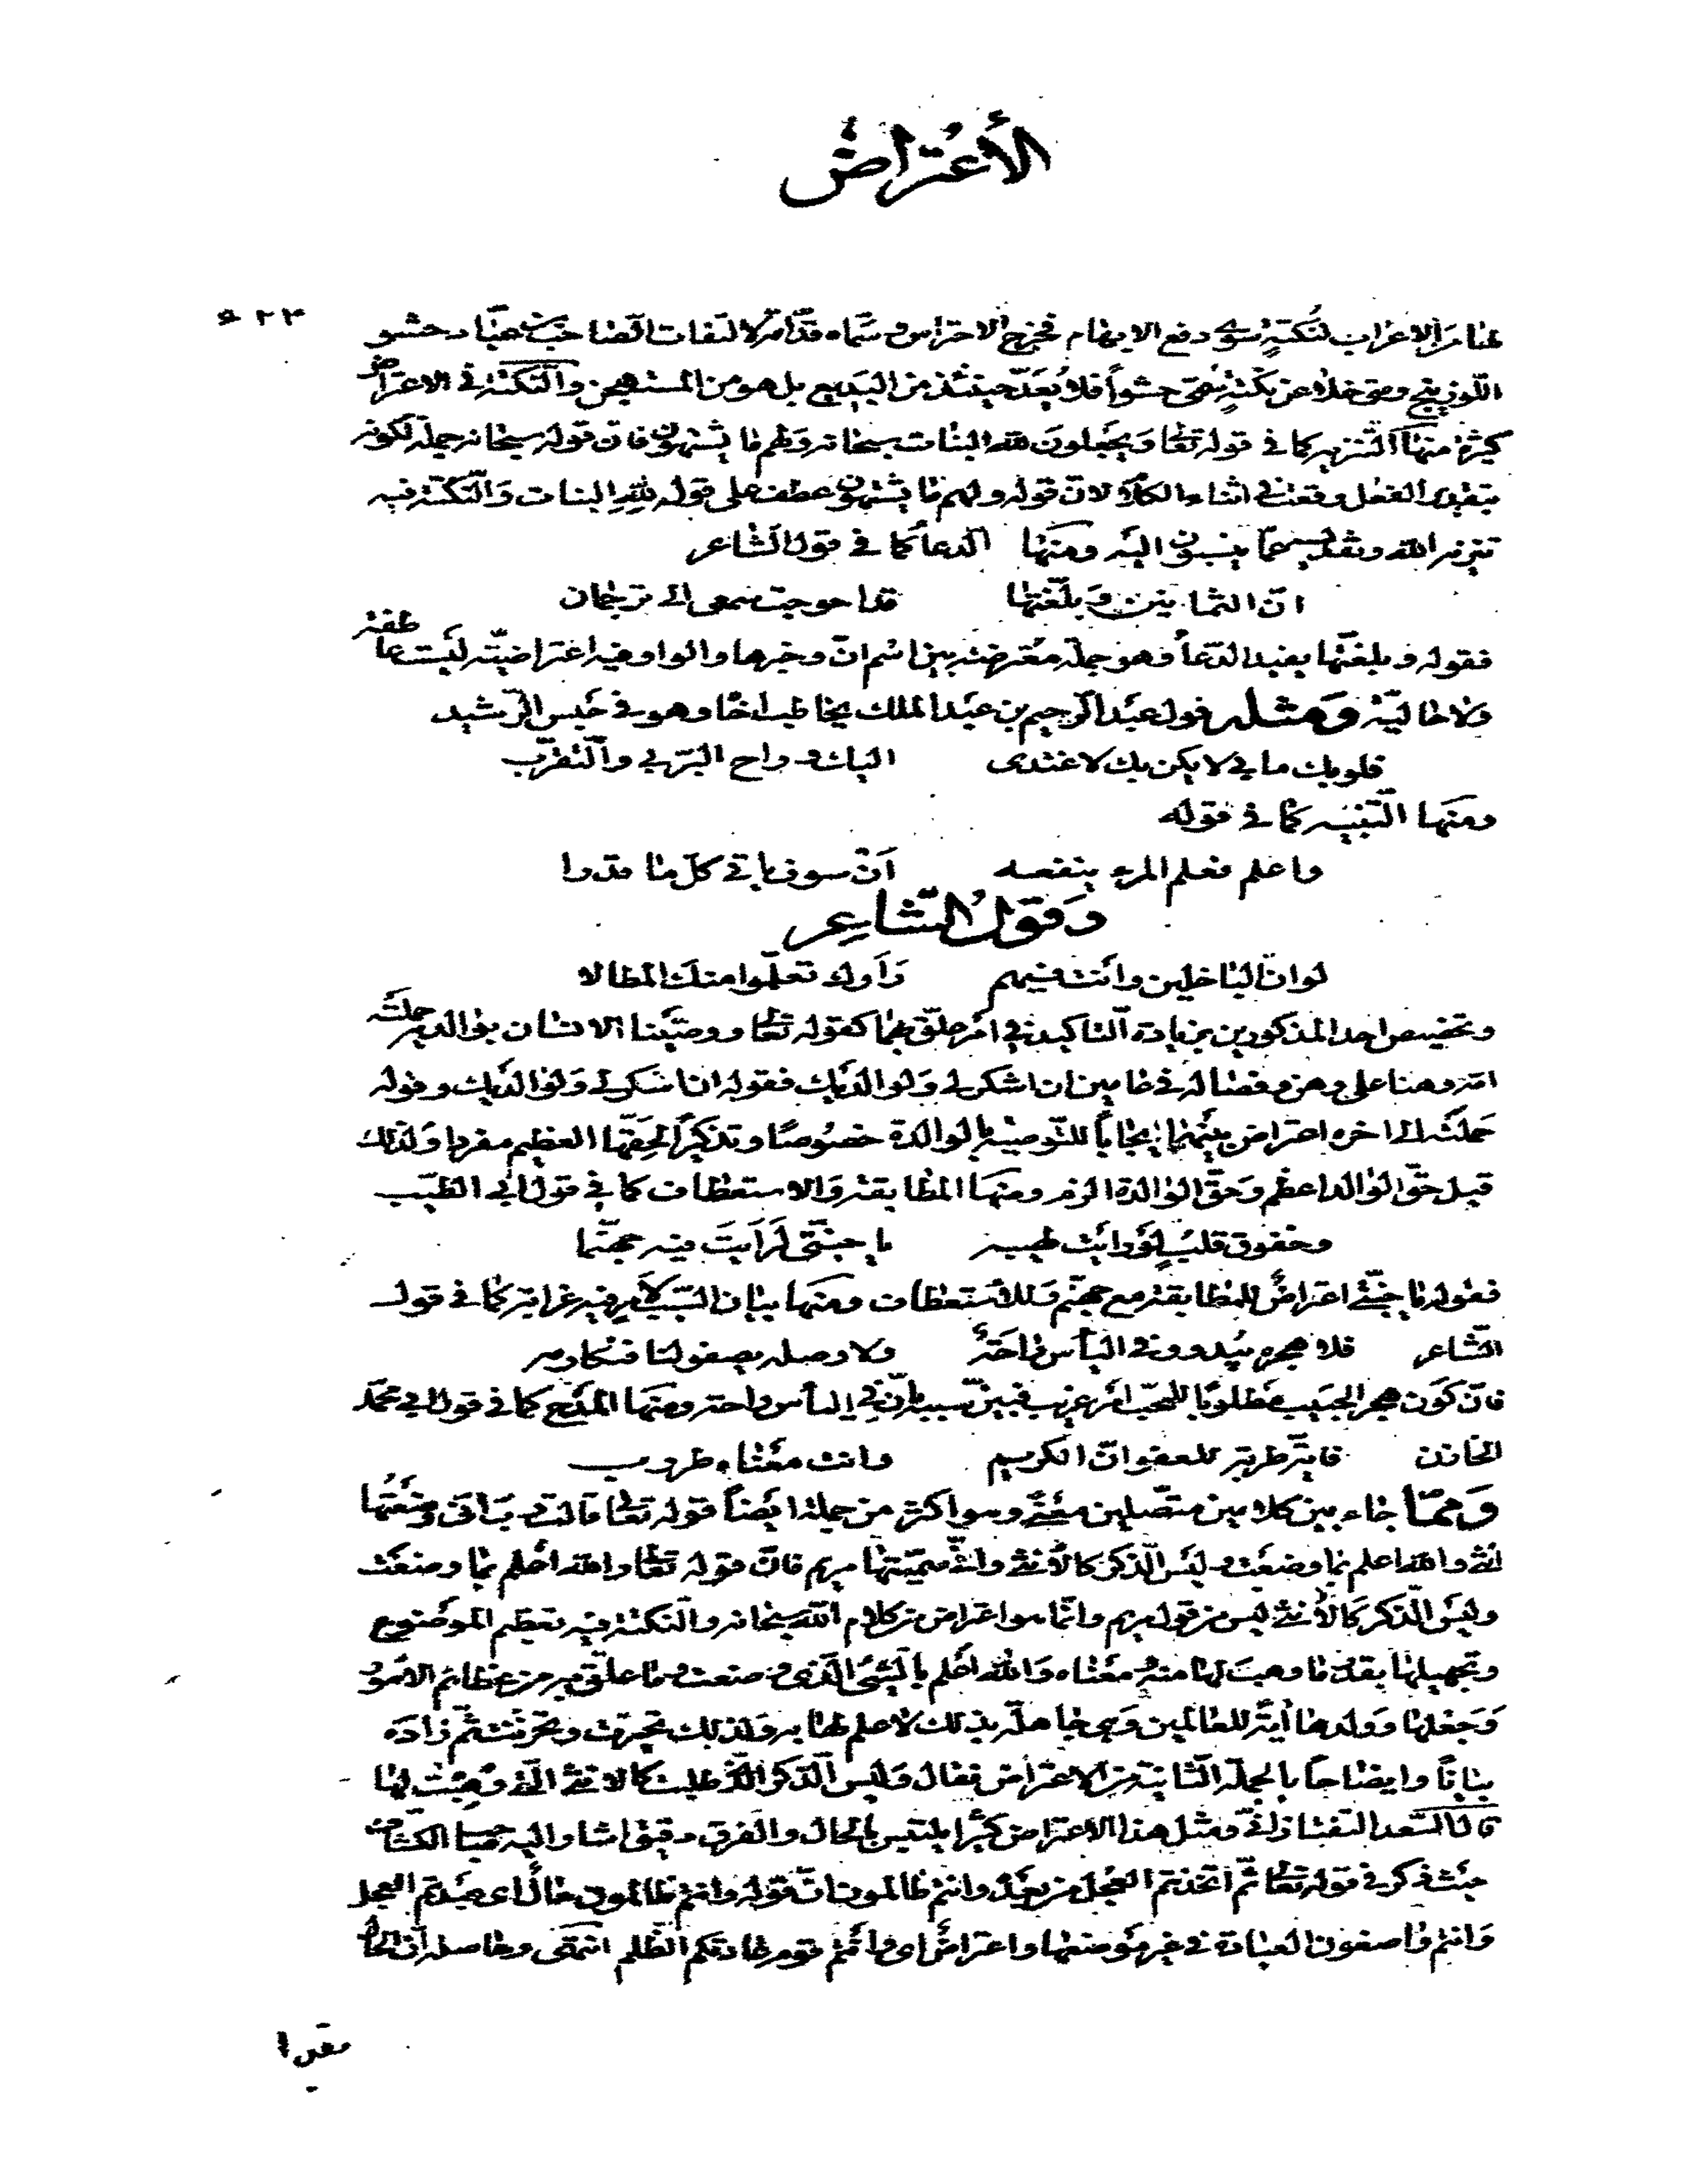 الأعتراض
٥٢٣
لها من الاعراب لنكتة سوى دفع الايهام فخرج الاحتراس وسماه قدامة الالتفات الصاحب بن عباد حشو
اللوزينج ومتى خلا عن نكتة سمى حشواً فلا يُعَدّ حينئذ من البديع بل هو من المستهجن والنكتة فى الاعتراض
كثيرة منها التنزيه كما فى قوله تعالى وَيَجْعلونَ لله البنات سبحانه ولهم ما يشتهون فان قوله سبحانه جملة لكونه
بتقدير الفعل وقعت فى اثناء الكلام لان قوله ولهم ما يشتهون عطف على قوله لله البنات والنكتة فيه
تنزيه الله وتقديسه عما ينسبون اليه ومنها الدعاء كما فى قول الشاعر
ان الثمانين وبلّغتها قد احوجت سمعى الى ترجمان
فقوله وبلغتها يفيد الدعاء وهو جملة معترضة بين اسم ان وخبرها والواو فيه اعتراضيّة ليست عاطفة
ولا حالية ومثله قول عبد الرحيم بن عبد الملك يخاطب اخاً وهو فى حبس الرشيد
فلو بك ما بى لا يكن بك لاغتدى اليك وراح البرّ بى والتقرّب
ومنها التنبيه كما فى قوله
واعلم فعلم المرء ينفعه أن سوف يأتى كل ما قدرا
وقول الشاعر
لو ان الباخلين وانت فيهم رأوك تعلّموا منك المطالا
وتخصيص احد المذكورين بزيادة التاكيد فى امر علّق بهما كقوله تعالى ووصّينا الانسان بوالديه حملته
امه وهنا على وهن وفصاله فى عامين ان اشكر لى ولوالديك فقوله ان اشكر لى ولوالديك وقوله
حملته الى اخره اعتراض بينهما ايجاباً للتوصية بالوالدة خصوصاً وتذكيراً لحقّها العظيم مفردا ولذلك
قيل حقّ الوالد اعظم وحقّ الوالدة الزم ومنها المطابقة والاستعطاف كما فى قول ابى الطيّب
وخفوق قلبٍ لو رأيت لهيبه يا جنتى لرأيتَ فيه جهنّما
فقوله يا جنّتى اعتراض للمطابقة مع جهنّم وللاستعطاف ومنها بيان السبب لامر فيه غرابة كما فى قول
الشاعر فلا هجره يبدو وفى اليأس راحة ولا وصله يصفو لنا فنكارمه
فان كون هجر الحبيب مطلوبًا للمحب امر غريب فبيّن سببه بأن فى اليأس راحة ومنها المدح كما فى قول ابى محمد
الخازن فاية طربة للعفو ان الكريم وانت معناه طروب
وممّا جاء بين كلامين متصلين معنىً وهو اكثر من جملة ايضاً قوله تعالى قالت رب انى وضعتها
انثى والله اعلم بما وضعت وليس الذكر كالأنثى وانى سمّيتها مريم فان قوله تعالى والله اعلم بما وضعت
وليس الذكر كالأنثى ليس من قول مريم وانما هو اعتراض من كلام الله سبحانه والنكتة فيه تعظيم الموضوع
وتجهيلها بقدر ما وهب لها منه ومعناه والله اعلم بالشئ الذى وضعت وما علّق به من عظائم الامور
وجعلها وولدها أيةً للعالمين وهى جاهلة بذلك لا علم لها به ولذلك تحيرت وتحزنت ثم زاده
بياناً وايضاحاً بالجملة الثانية من الاعتراض فقال وليس الذكر الذى طلبت كالانثى التى وُهبت لها
قال السعد التفتازانى ومثل هذا الاعتراض كثيرا يلتبس بالحال والفرق دقيق اشار اليه صاحب الكشاف
حيث ذكر فى قوله تعالى ثم اتخذتم العجل من بعده وانتم ظالمون ان قوله وانتم ظالمون حال اى عبدتم العجل
وانتم واضعون العبادة فى غير موضعها واعتراض اى وانتم قوم عادتكم الظلم انتهى وحاصله ان الحال